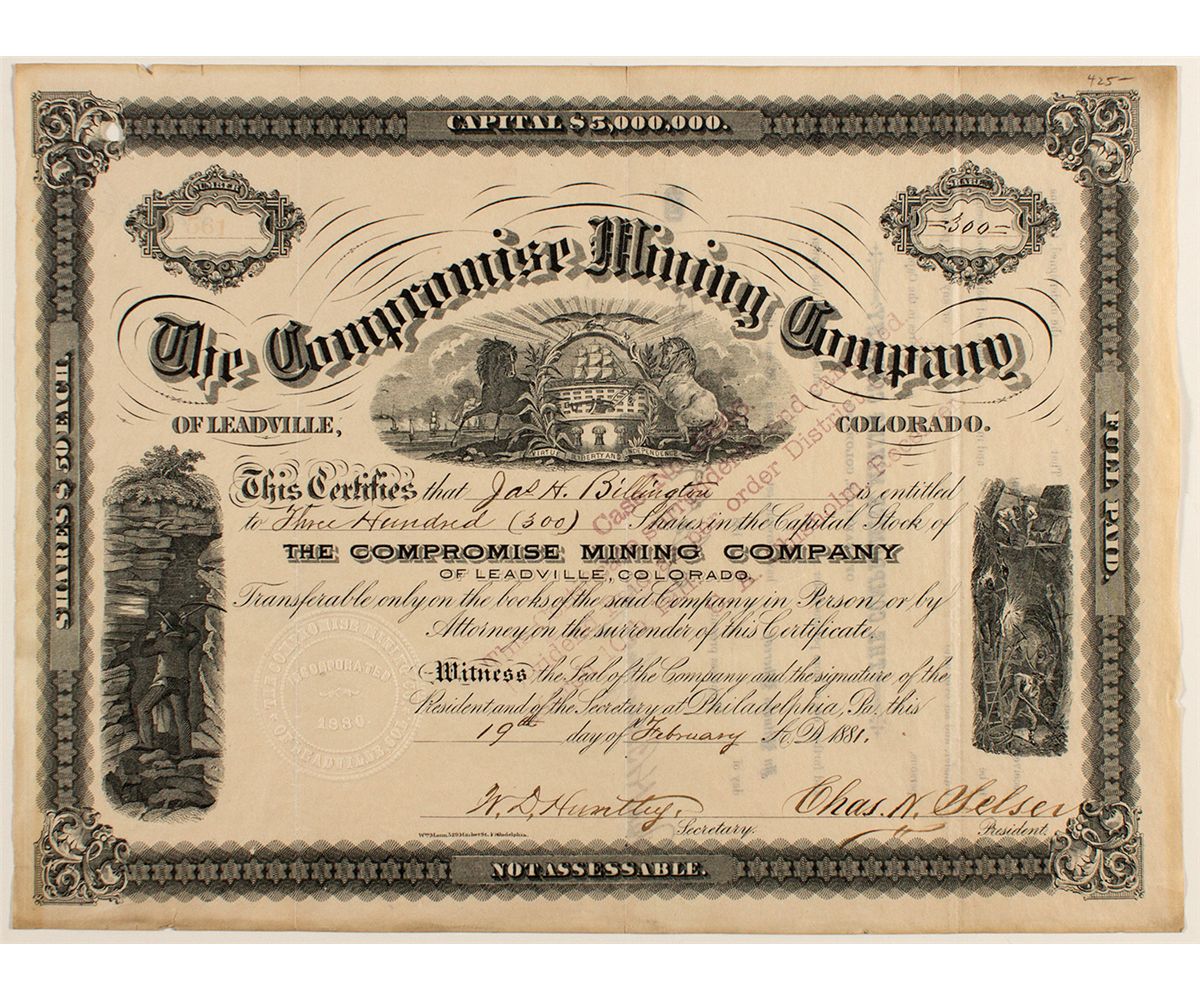 425-
CAPITAL $5,000,000.
NUMBER
561
SHARES
-300-
The Compromise Mining Company
OF LEADVILLE,
COLORADO.
VIRTUE LIBERTY AND INDEPENDENCE
This Certifies that Jas H. Billington is entitled
to Three Hundred (300) Shares in the Capital Stock of
THE COMPROMISE MINING COMPANY
OF LEADVILLE, COLORADO
Transferable only on the books of the said Company in Person or by
Attorney on the surrender of this Certificate.
Witness the Seal of the Company and the signature of the
President, and of the Secretary at Philadelphia, Pa. this
19th day of February A.D. 1881.
W. D. Huntley.
Secretary.
Chas. N.
President.
Wm Mann, 529 Market St. Philadelphia.
NOT ASSESSABLE.
SHARES $50 EACH.
FULL PAID.
INCORPORATED
1880.
surrendered and
order